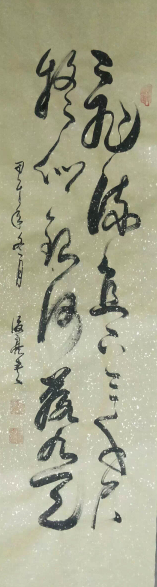 飛流直下三千尺
疑似銀河落九天
甲午年冬月